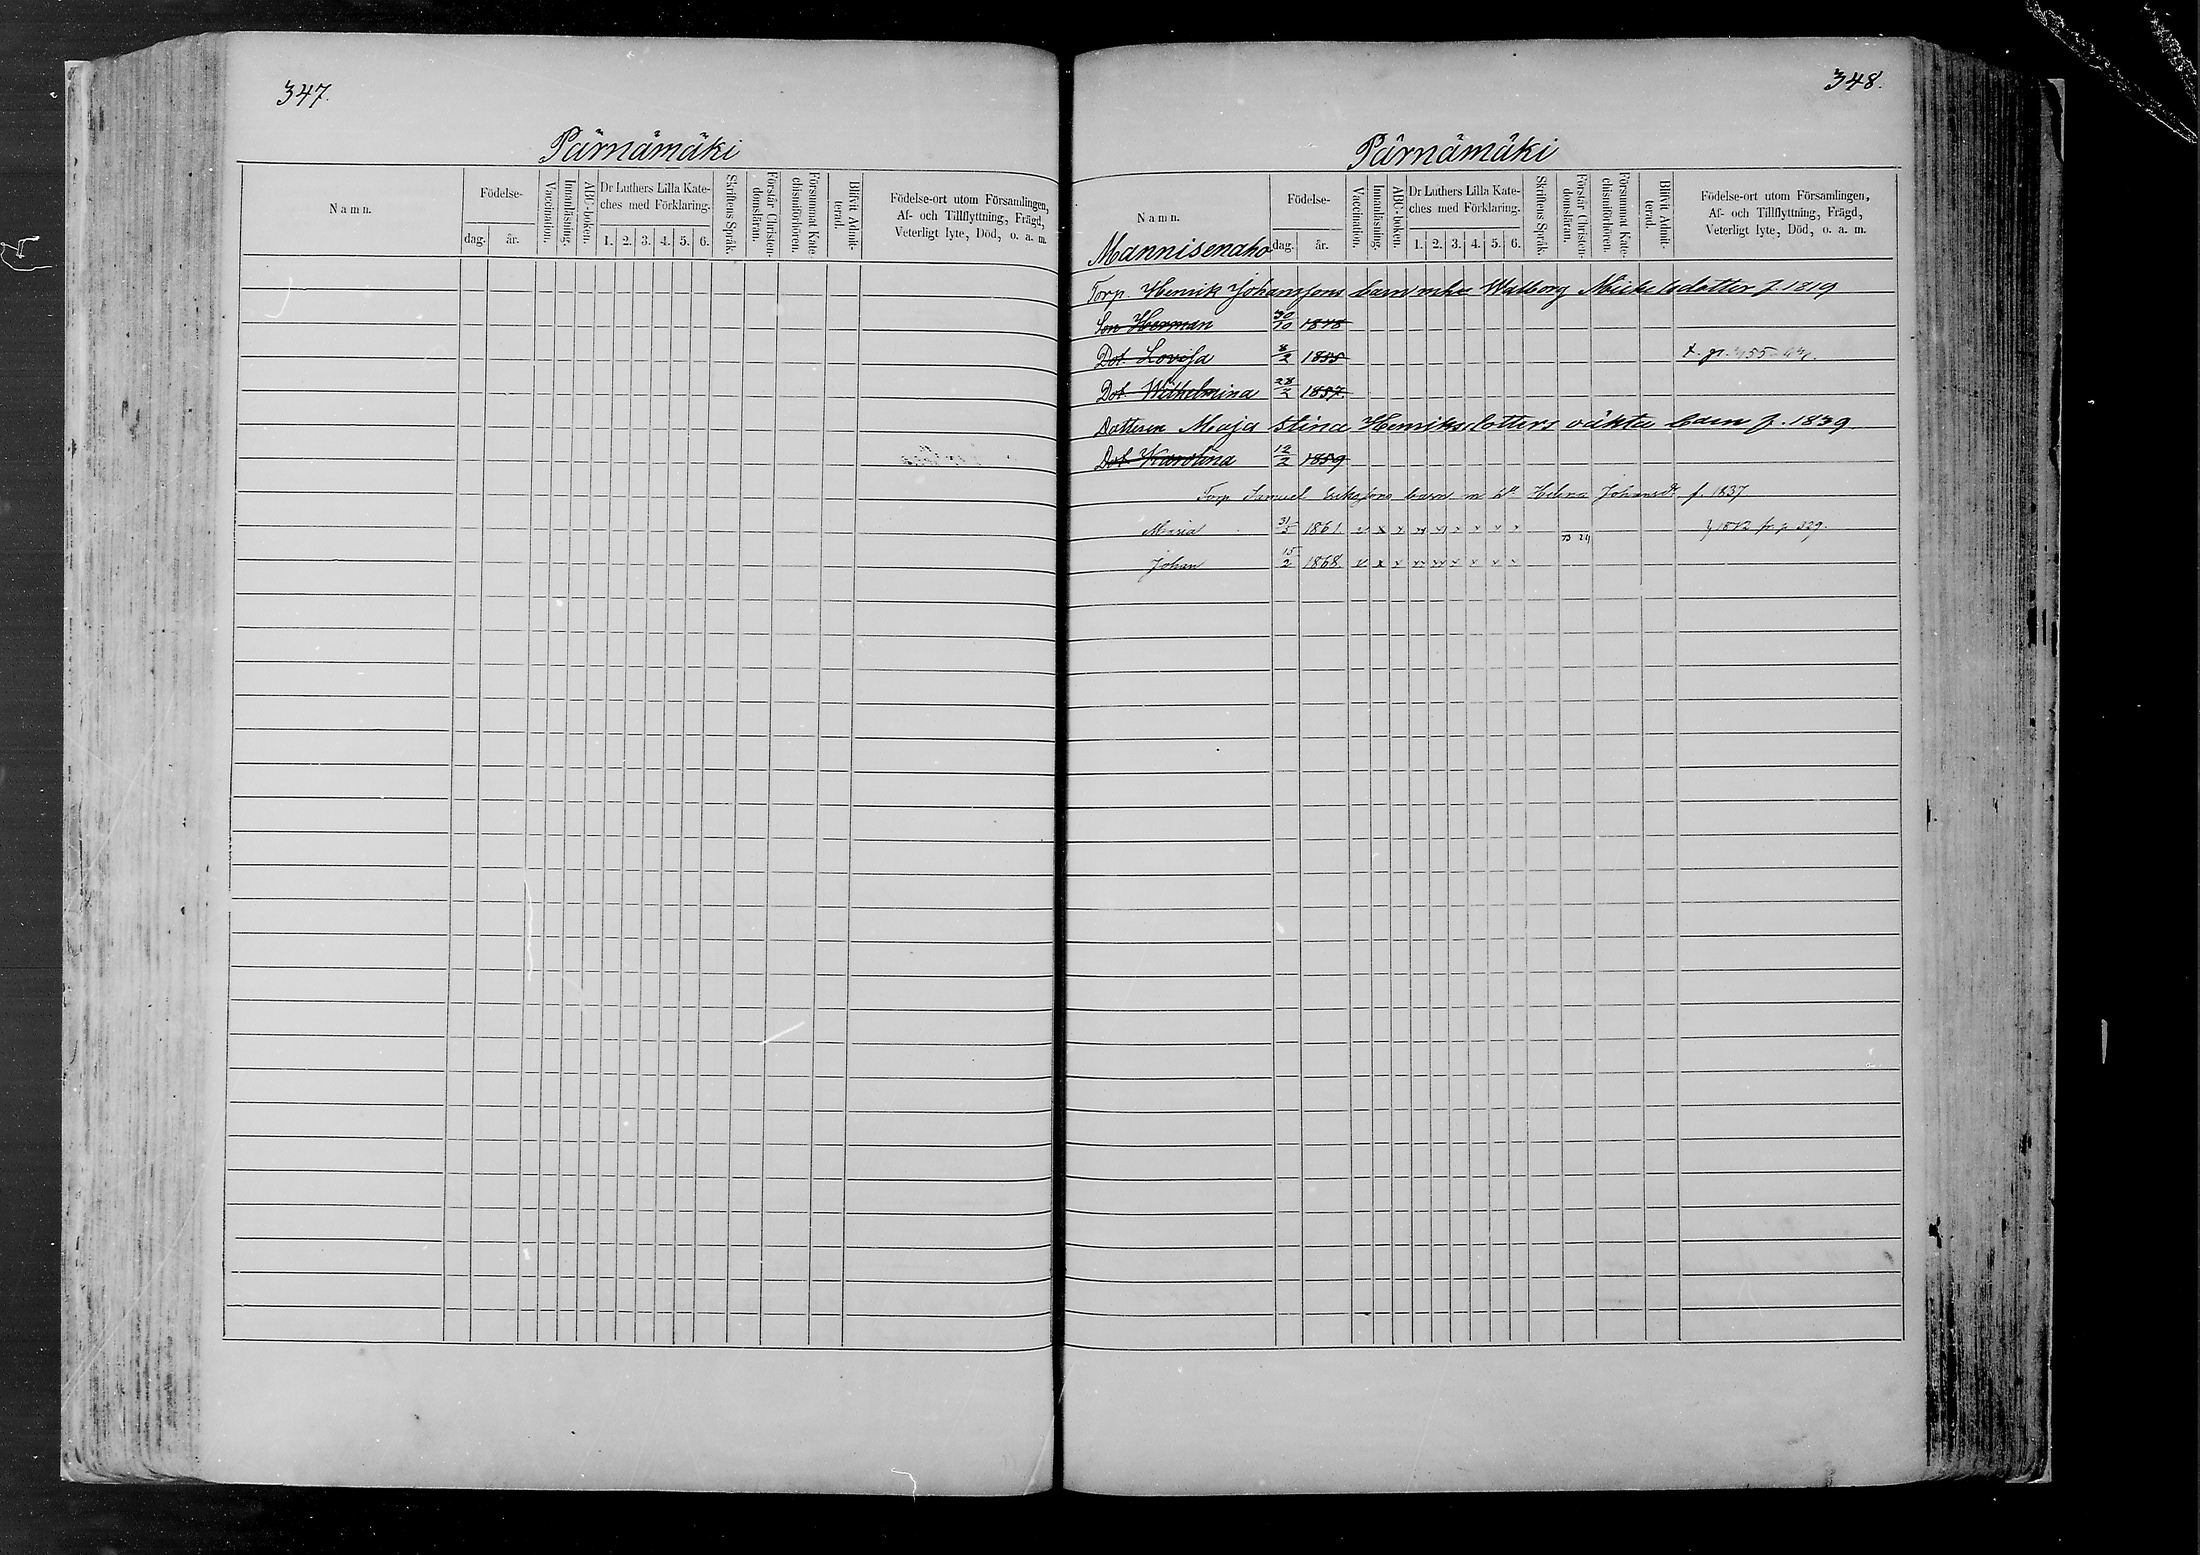 347.
Pärnämäki
Namn.
Födelse-
dag.
år.
Vaccination.
Innanläsning.
ABC-boken.
Dr Luthers Lilla Kate-
ches med Förklaring.
1. 2. 3. 4. 5. 6.
Skriftens Språk.
Förstår Christen-
domsläran.
Försummat Kate-
chismiförhören.
Blifvit Admit-
terad.
Födelse-ort utom Församlingen,
Af- och Tillflyttning, Frägd,
Veterligt lyte, Död, o. a. m.
348.
Pärnämäki
Namn.
Mannisenaho
Födelse-
dag.
år.
Vaccination.
Innanläsning.
ABC-boken.
Dr Luthers Lilla Kate-
ches med Förklaring.
1. 2. 3. 4. 5. 6.
Skriftens Språk.
Förstår Christen-
domsläran.
Försummat Kate-
chismiförhören.
Blifvit Admit-
terad.
Födelse-ort utom Församlingen,
Af- och Tillflyttning, Frägd,
Veterligt lyte, Död, o. a. m.
Torp. Henrik Johanssons barn Walborg Mickelsdotter f. 1819
Son Herman 30/10 1848
Dot. Lovisa 8/2
Dot. Wilhelmina 28/2 1857
Dotteren Maja Stina Henriksdotters oäkta barn f. 1839
Dot. Karolina 12/2 1859
Torp Samuel Erikssons barn m h. Helena Johansdr f. 1837
Maria 31/5 1861 x x x x x x x x 329.
Johan 15/2 1868 x x x x x x x x